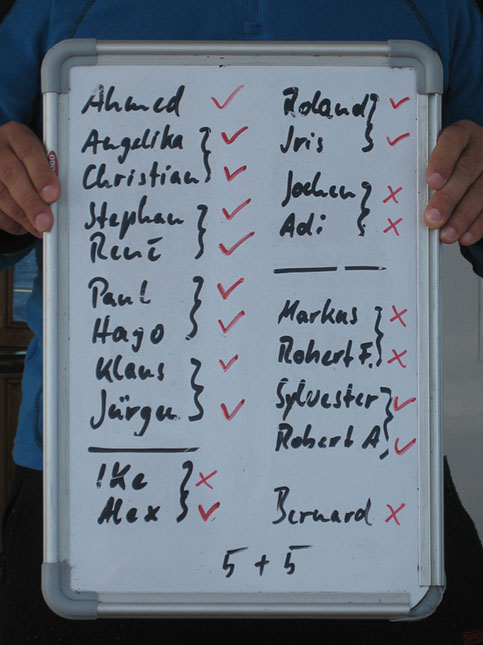 Ahmed ✓
Angelika ✓
Christian ✓
Stephan ✓
René ✓
Paul ✓
Hago ✓
Klaus ✓
Jürgen ✓
Ike ✗
Alex ✓
Roland ✓
Iris ✓
Jochen ✗
Adi ✗
Markus ✗
Robert F. ✗
Sylvester ✓
Robert A. ✓
Bernard ✗
5 + 5